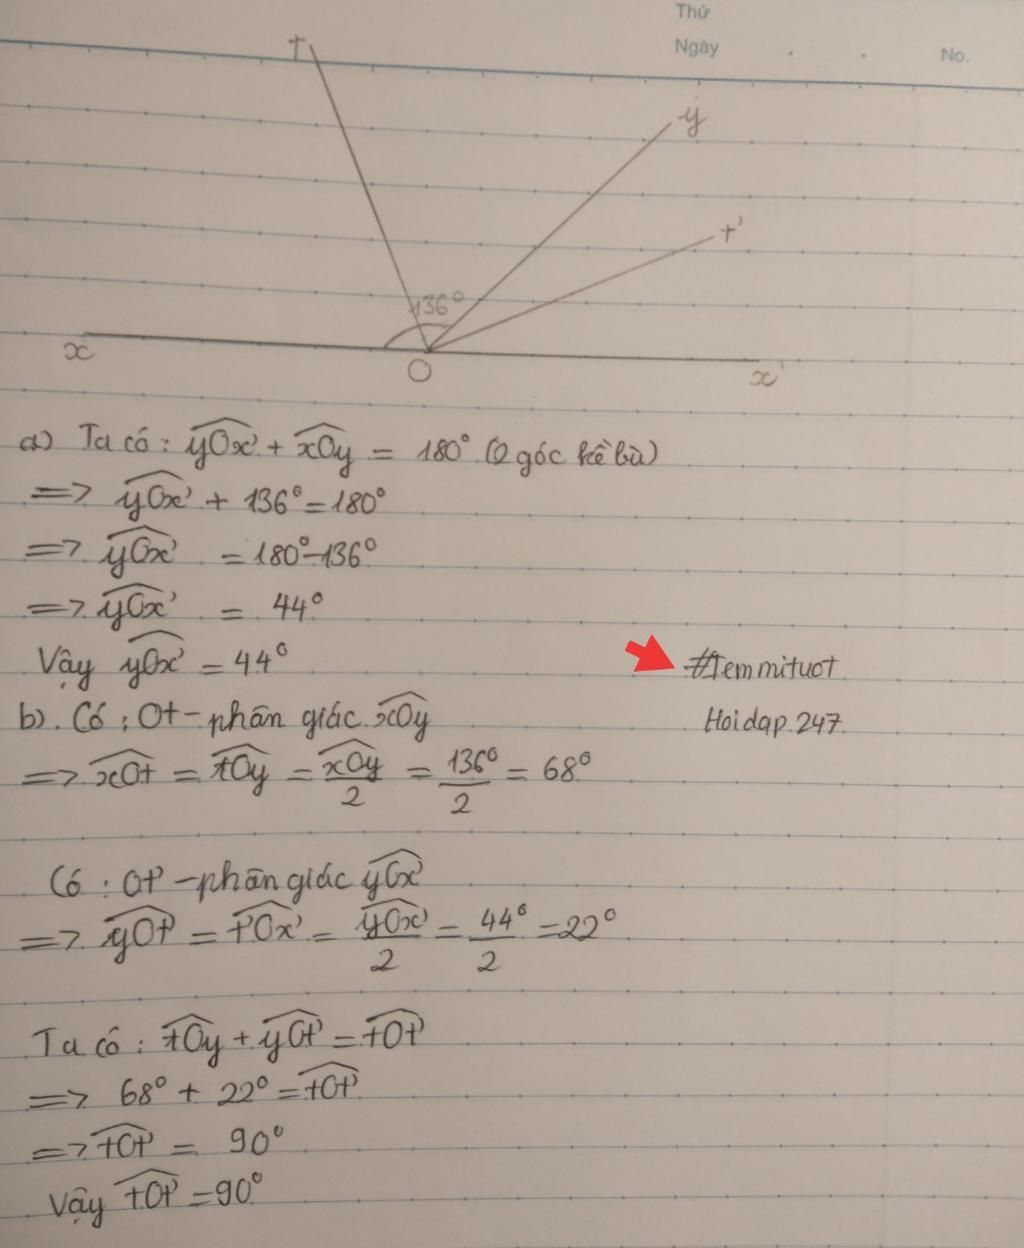 Thứ
Ngày . . No.
t
y
t'
136°
x
O
x'
a) Ta có: yOx' + xOy = 180° (2 góc kề bù)
=> yOx' + 136° = 180°
=> yOx' = 180° - 136°
=> yOx' = 44°
Vậy yOx' = 44°
#Temmituot
b). Có: Ot - phân giác xOy
Hoidap.247.
=> xOt = tOy = xOy/2 = 136°/2 = 68°
Có: Ot' - phân giác yOx'
=> yOt' = t'Ox' = yOx'/2 = 44°/2 = 22°
Ta có: tOy + yOt' = tOt'
=> 68° + 22° = tOt'
=> tOt' = 90°
Vậy tOt' = 90°